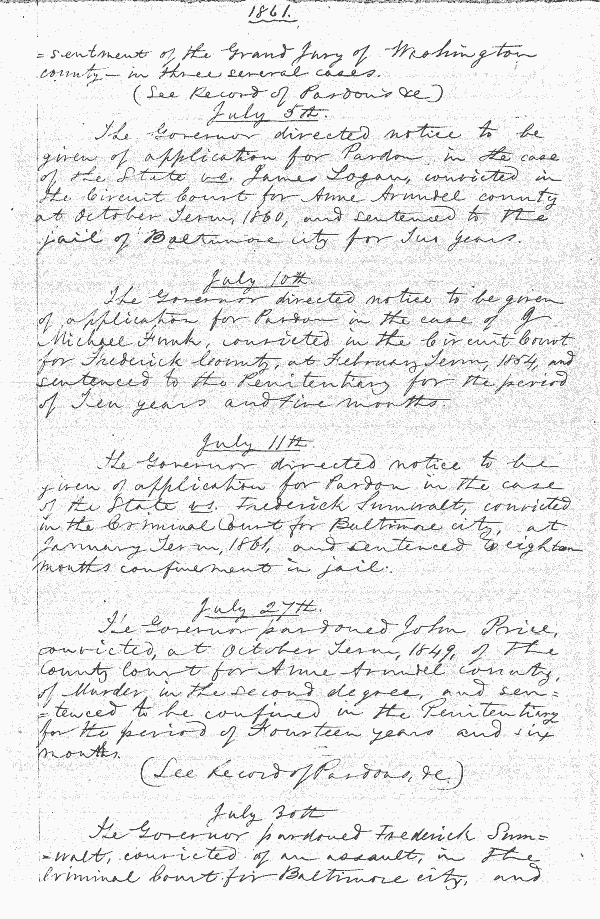 1861.
=sentment of the Grand Jury of Washington
county — in three several cases.
(See Record of Pardons &c.)
July 5th.
The Governor directed notice to be
given of application for Pardon in the case
of the State vs. James Logan, convicted in
the Circuit Court for Anne Arundel county
at October Term, 1860, and sentenced to the
jail of Baltimore city for Two years.
July 10th
The Governor directed notice to be given
of application for Pardon in the case of
Michael Funk, convicted in the Circuit Court
for Frederick County, at February Term, 1854, and
sentenced to the Penitentiary for the period
of Ten years and five months.
July 11th
The Governor directed notice to be
given of application for Pardon in the case
of the State vs. Frederick Sumwalt, convicted
in the Criminal Court for Baltimore city, at
January Term, 1861, and sentenced to eighteen
months confinement in jail.
July 27th.
The Governor pardoned John Price,
convicted, at October Term, 1849, of the
County Court for Anne Arundel county,
of Murder in the second degree, and sen=
=tenced to be confined in the Penitentiary
for the period of Fourteen years and six
months.
(See Record of Pardons, &c.)
July 30th
The Governor pardoned Frederick Sum=
=walt, convicted of an assault, in the
Criminal Court for Baltimore city, and